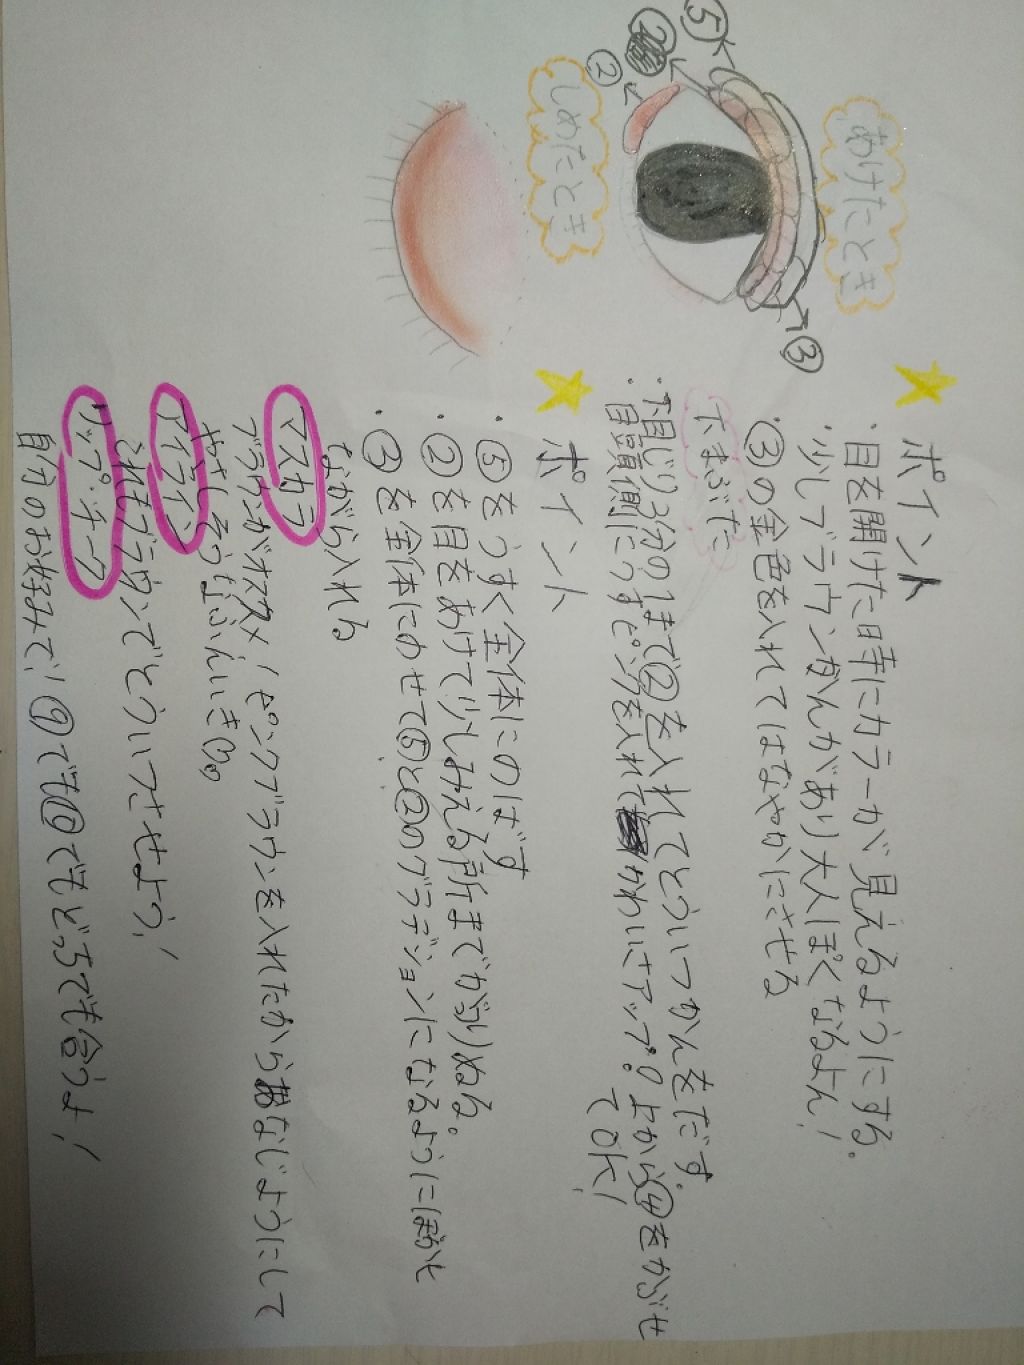 あけたとき
⑤
②
②
③
しめたとき
ポイント
・目を開けた時にカラーが見えるようにする。
・少しブラウンかんがあり大人ぽくなるよん!
・③の金色を入れてはなやかにさせる
下まぶた
・下目じり3分の1まで②を入れてとういつかんをだす。
・目頭側にうすピンクを入れてかわいさアップ。上から④をかぶせ
てOK!
ポイント
・⑤をうすく全体にのばす
・②を目をあけて少しみえる所までがっりぬる。
・③を全体にのせて⑤と②のグラデションになるようにぼかし
ながら入れる
マスカラ
ブラウンがオススメ!ピンクブラウンを入れたからおなじようにして
やさしそうなふんいきに。
アイライン
これもブラウンでとういつさせよう!
リップ・チーク
自分のお好みで!⑨でも⑩でもどっちでも合うよ!